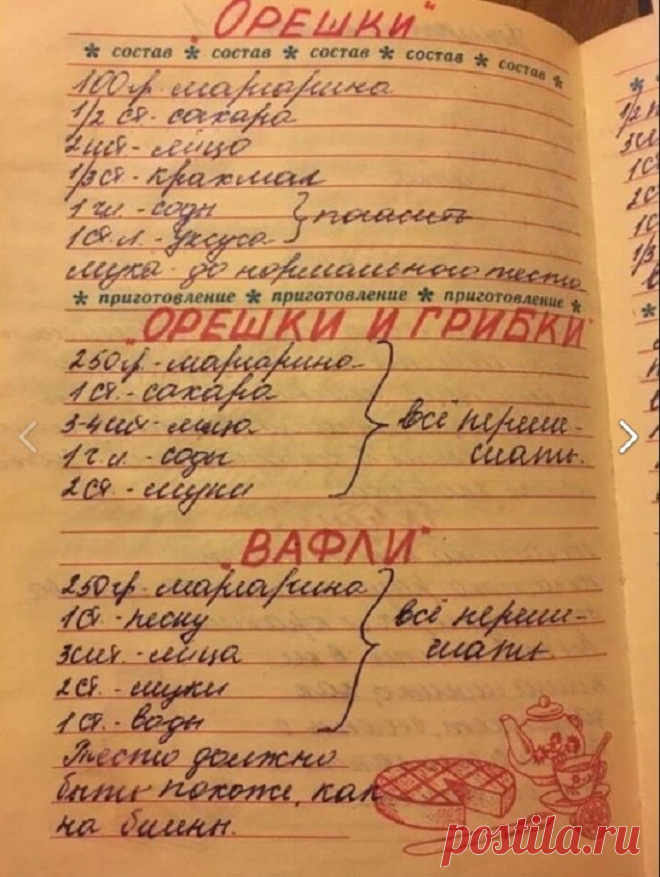 „ОРЕШКИ"
* состав * состав * состав * состав * состав *
100гр. маргарина
1/2 ст. сахара
2 шт. яйцо
1/3 ст. крахмал
1 ч.л. - соды } погасить
1 ст. л. - уксуса
мука - до нормального теста
* приготовление * приготовление * приготовление *
„ОРЕШКИ И ГРИБКИ"
250гр. - маргарина
1 ст. - сахара
3-4 шт. - яйца } всё переме-
1 ч.л. - соды шать.
2 ст. - муки
„ВАФЛИ"
250гр. - маргарина
1 ст. - песку } всё переме-
3 шт. - яйца шать.
2 ст. - муки
1 ст. - воды
Тесто должно
быть похоже, как
на блины.
postila.ru